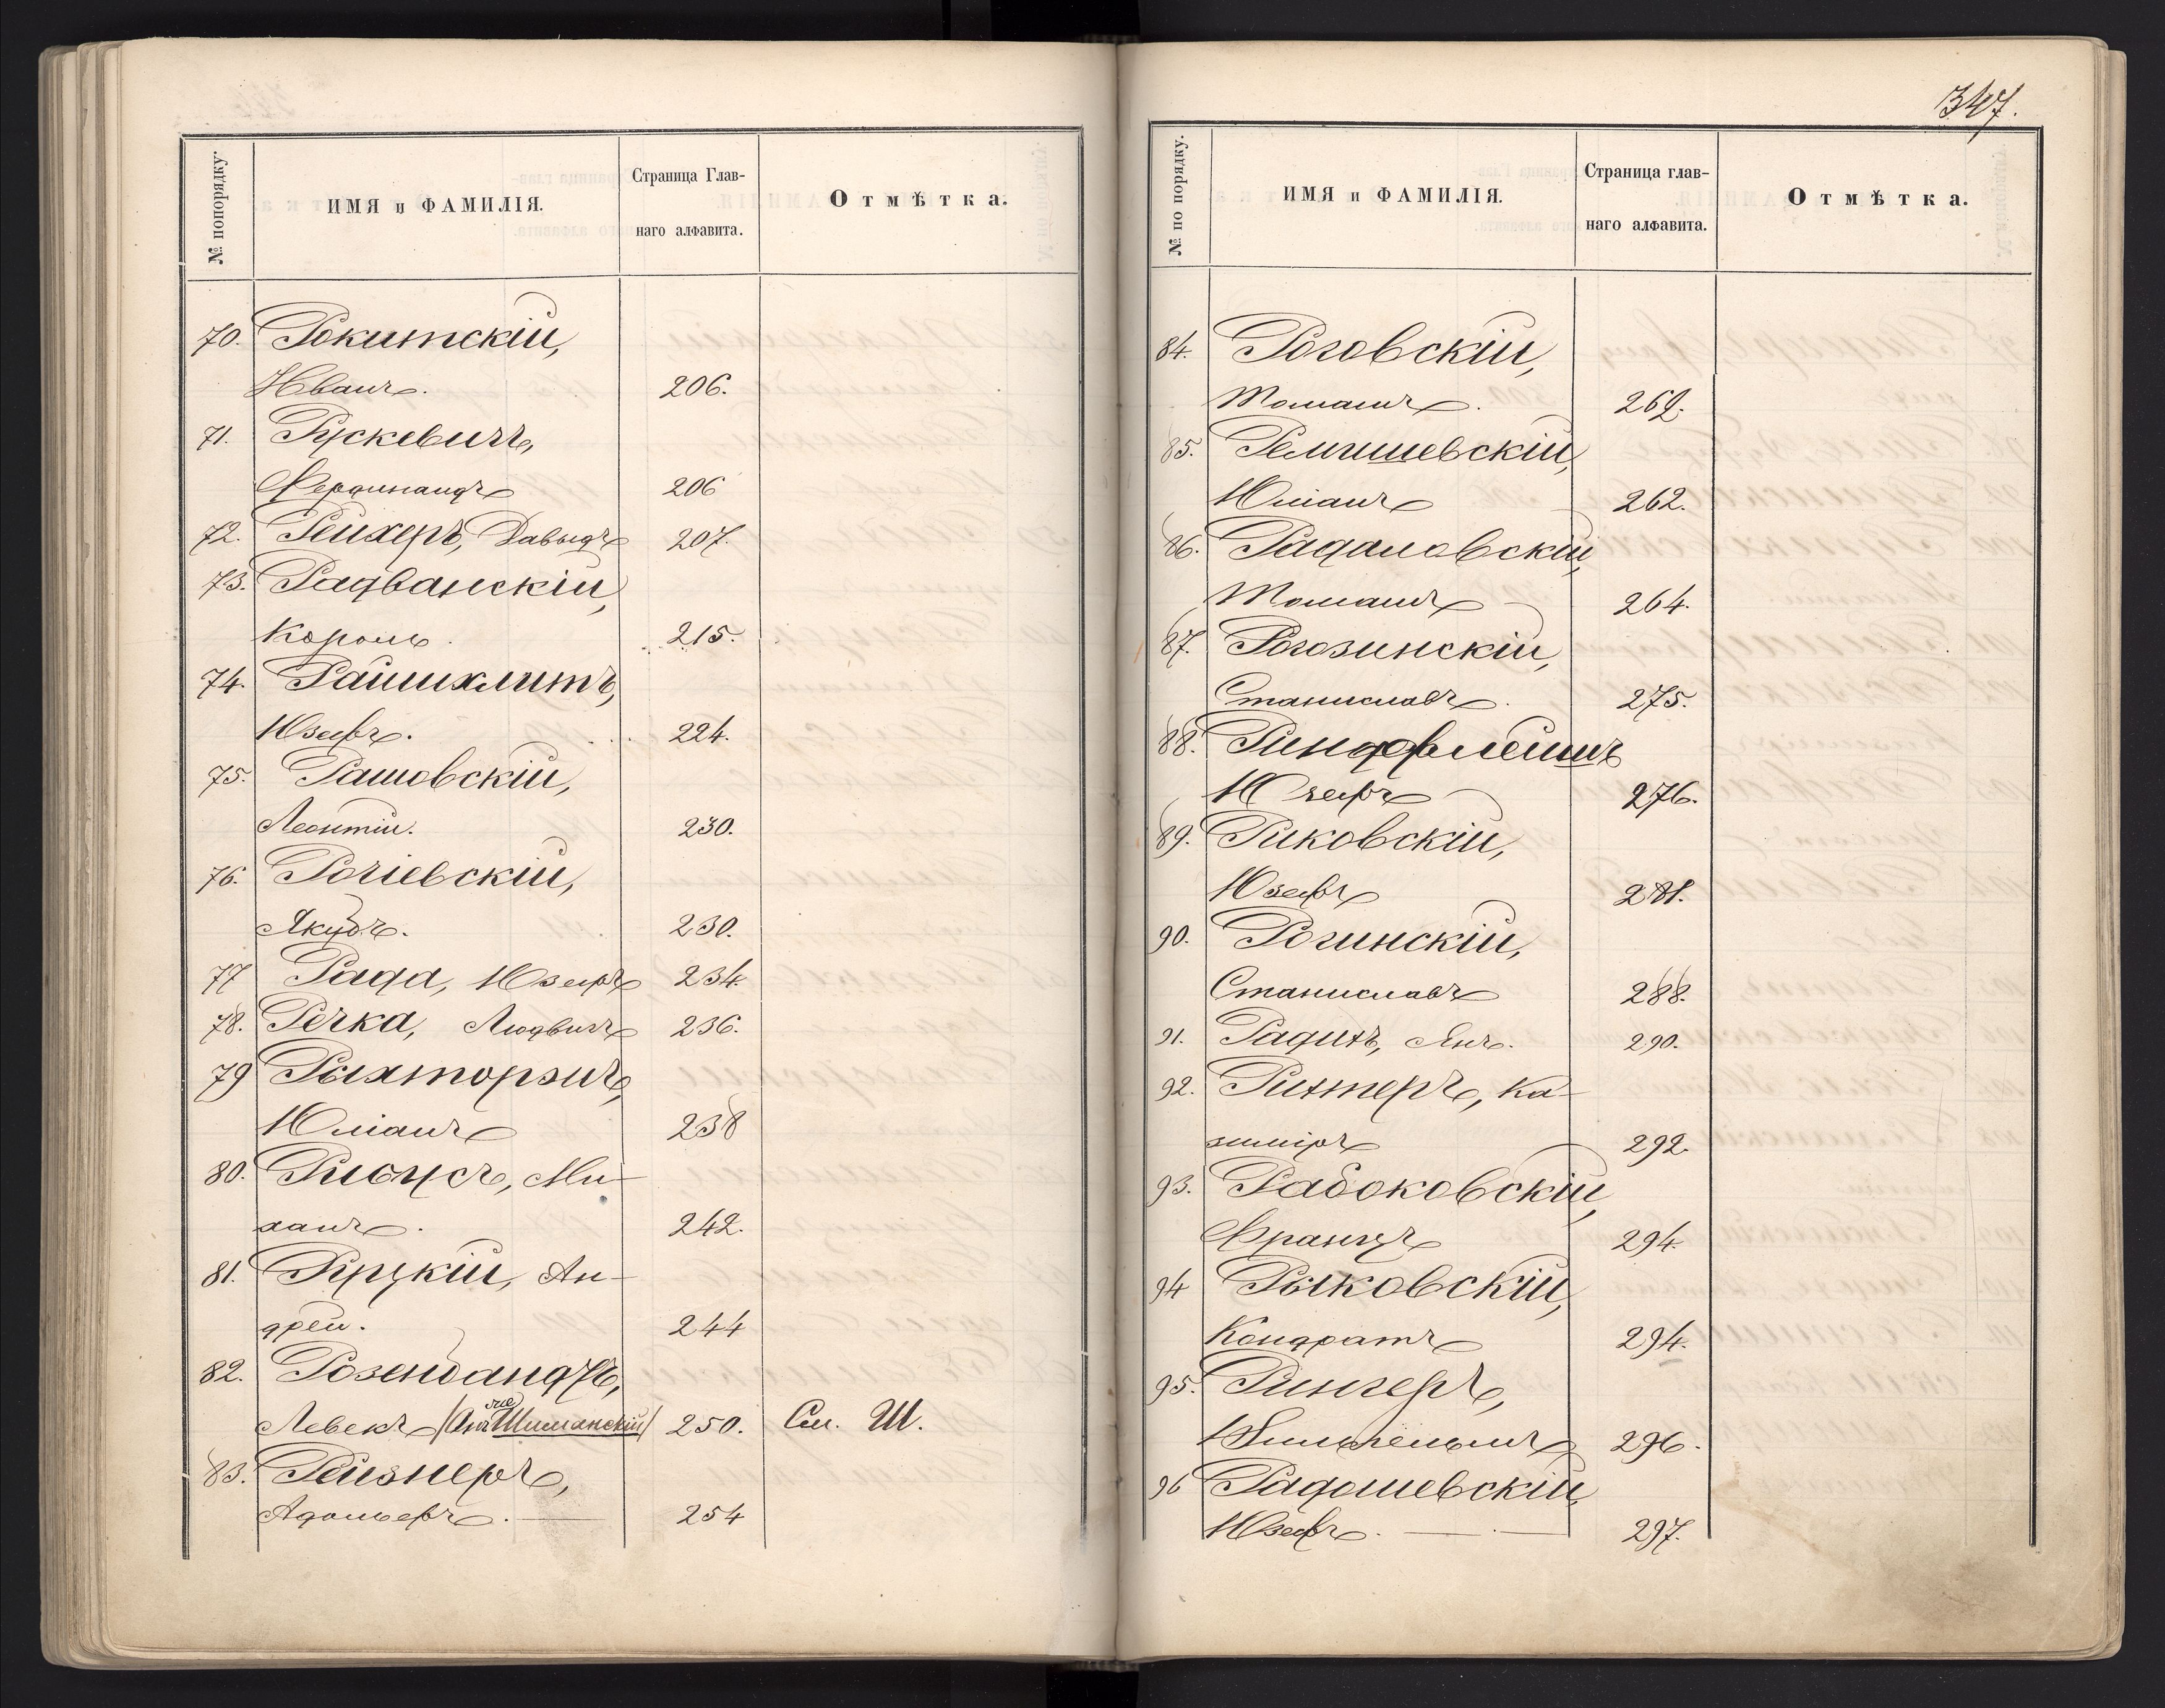 № попорядку.
ИМЯ и ФАМИЛІЯ.
Страница Глав-
наго алфавита.
Отмѣтка.
70. Рокитскій,
Иванъ. 206.
71. Рускевичъ,
Фердинандъ 206
72. Рейхеръ, Давыдъ 207.
73. Радванскій,
Кароль. 215.
74. Райшхлитъ,
Юзефъ. 224.
75. Рашовскій,
Леонтій. 230.
76. Рочіевскій,
Якубъ. 230.
77 Рада, Юзефъ 234.
78. Речка, Людвигъ 236.
79 Рыхторзичъ,
Юліанъ 238
80. Рибусъ, Ми-
халъ. 242.
81. Руцкій, Ан-
дрей. 244
82. Розенбандтъ,
Левекъ (Шиманскій) 250. См. Ш.
83. Рейзнеръ,
Адольефъ. 254
347.
№ по порядку.
ИМЯ и ФАМИЛІЯ.
Страница глав-
наго алфавита.
Отмѣтка.
84. Роговскій,
Томашъ. 262.
85. Ремишевскій,
Юліанъ 262.
86. Радаловскій,
Томашъ 264.
87. Рогозинскій,
Станиславъ. 275.
88. Риндфлейшъ
Юзефъ 276.
89. Риковскій,
Юзефъ 281.
90. Рогинскій,
Станиславъ 288.
91. Радихъ, Янъ. 290.
92. Рихтеръ, Ка-
зиміръ 292.
93. Рабоковскій,
Францъ 294.
94 Рыковскій,
Кондратъ 294.
95. Рингеръ,
Вильгельмъ 296.
96 Радошевскій
Юзефъ. 297.